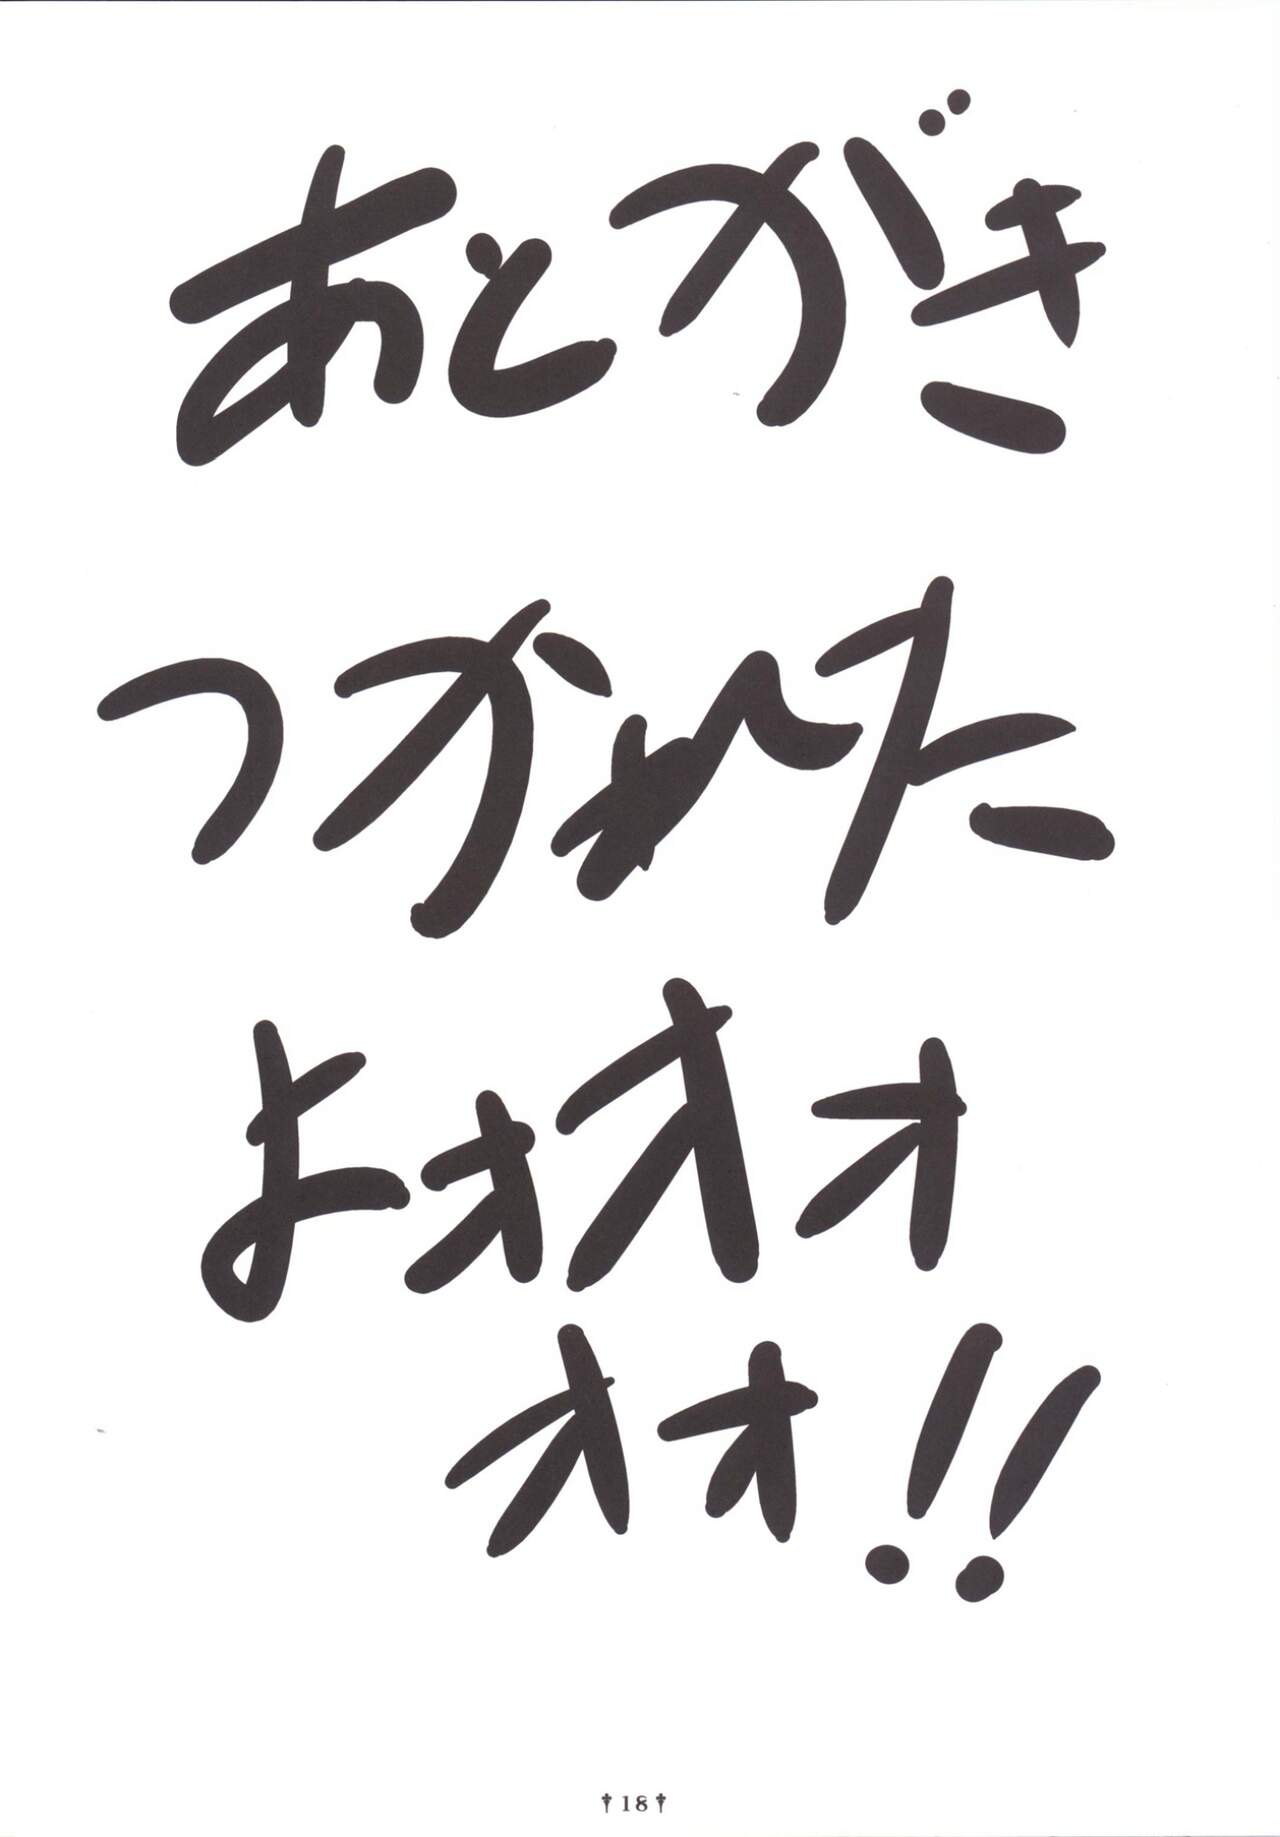 あとがき
つかれた
よォオォ
オォ!!
†18†